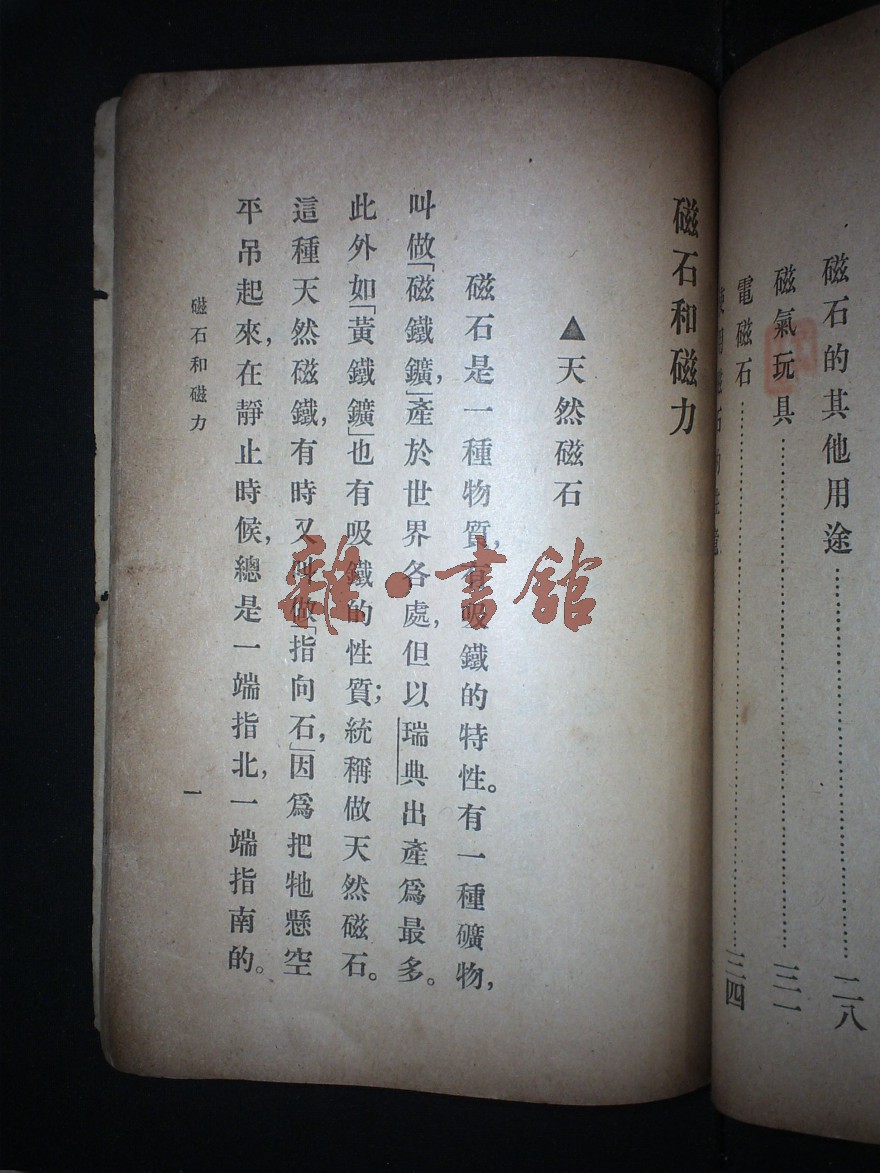 磁石的其他用途……二八
磁氣玩具……三一
電磁石……三四
磁石和磁力
▲天然磁石
磁石是一種物質，有吸鐵的特性。有一種礦物，
叫做「磁鐵鑛」，產於世界各處，但以瑞典出產爲最多。
此外如「黃鐵鑛」也有吸鐵的性質；統稱做天然磁石。
這種天然磁鐵，有時又叫做「指向石」，因爲把牠懸空
平吊起來，在靜止時候，總是一端指北，一端指南的。
磁石和磁力
一
雜·書館